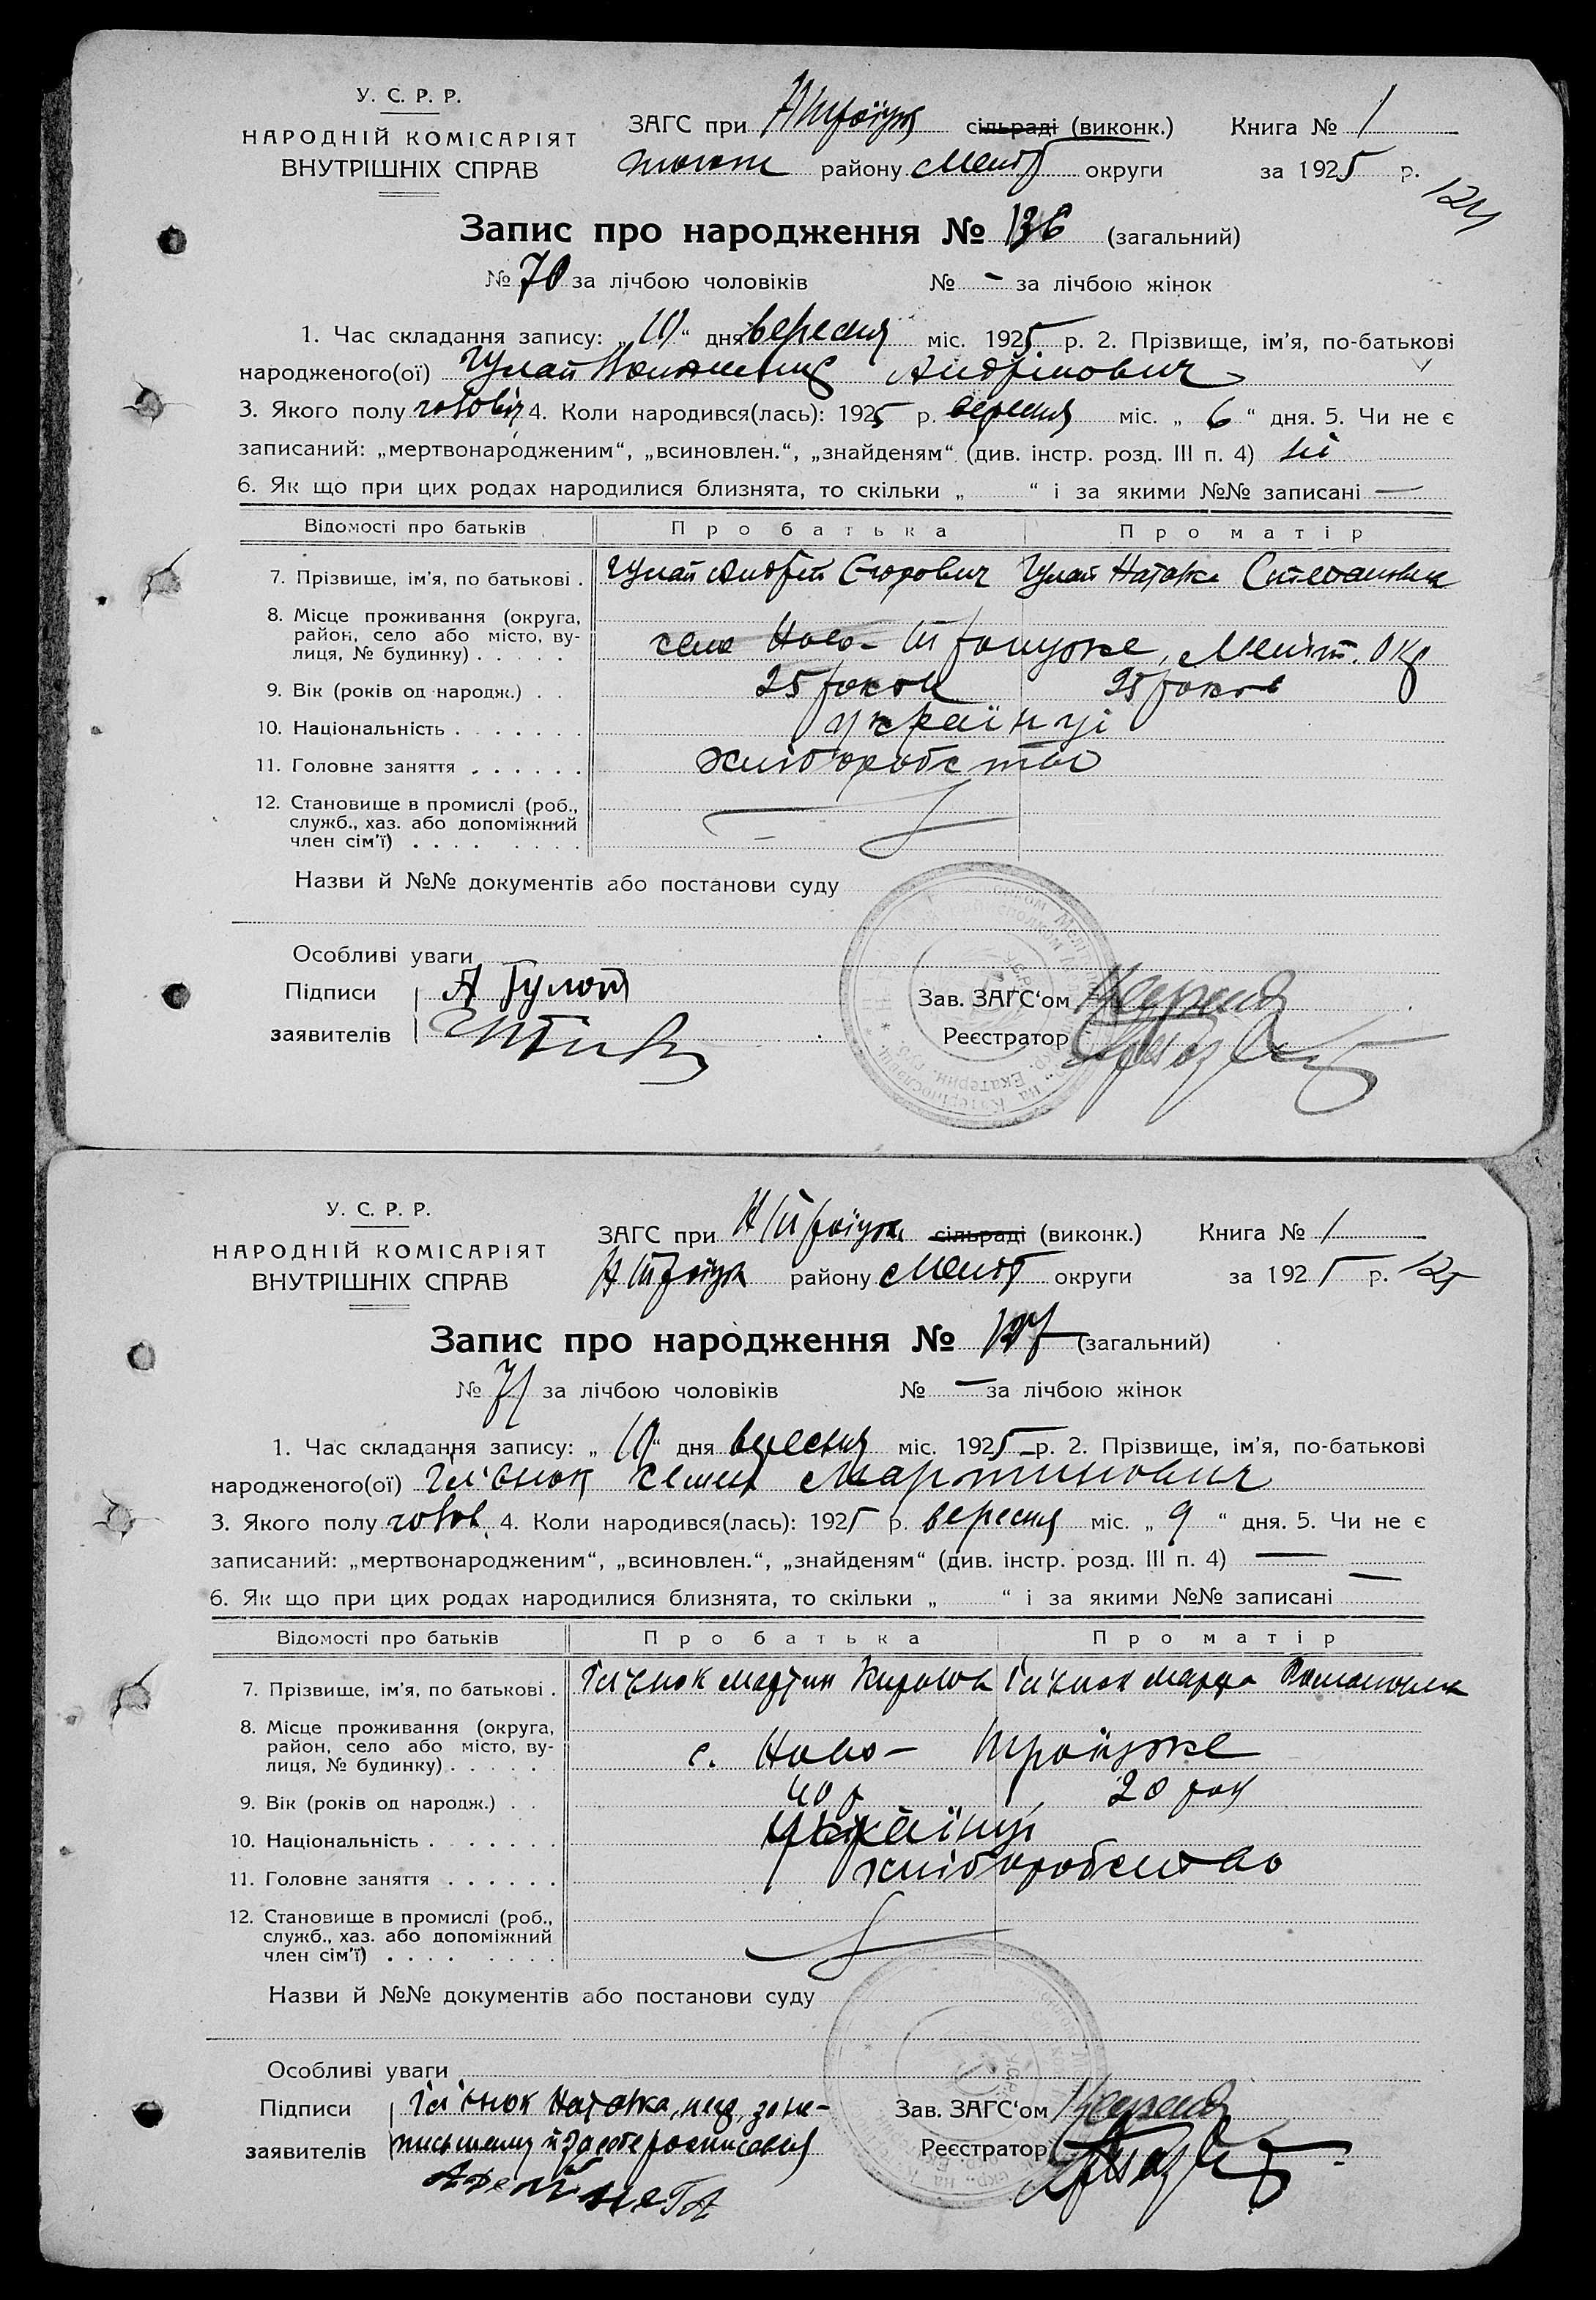 У. С. Р. Р.
НАРОДНІЙ КОМІСАРІЯТ
ВНУТРІШНІХ СПРАВ
ЗАГС при сільраді (виконк.) Книга № 1
району Меліт округи за 1925 р.
124
Запис про народження № 136 (загальний)
№ 70 за лічбою чоловіків № – за лічбою жінок
1. Час складання запису: „ 10 “ дня вересня міс. 1925 р. 2. Прізвище, ім'я, по-батькові
народженого(ої) Гулай Андрійович
3. Якого полу чоловіч 4. Коли народився(лась): 1925 р. вересня міс. „ 6 “ дня. 5. Чи не є
записаний: „мертвонародженим“, „всиновлен.“, „знайденям“ (див. інстр. розд. III п. 4) ні
6. Як що при цих родах народилися близнята, то скільки „ “ і за якими №№ записані —
Відомості про батьків Про батька Про матір
7. Прізвище, ім'я, по батькові . Гулай Андрій Єгорович Гулай Наталка Степановна
8. Місце проживання (округа,
район, село або місто, ву-
лиця, № будинку) . . . . . село Ново-Троїцьке, Меліт. Окр
9. Вік (років од народж.) . . 25 років 25 років
10. Національність . . . . . . . українці
11. Головне заняття . . . . . . хліборобство
12. Становище в промислі (роб.,
служб., хаз. або допоміжний
член сім'ї) . . . . . . . .
Назви й №№ документів або постанови суду
Особливі уваги
Підписи А Гулай
заявителів
Зав. ЗАГС'ом
Реєстратор
У. С. Р. Р.
НАРОДНІЙ КОМІСАРІЯТ
ВНУТРІШНІХ СПРАВ
ЗАГС при Н Троїцьк сільраді (виконк.) Книга № 1
Н Троїцьк району Меліт округи за 1925 р. 125
Запис про народження № 137 (загальний)
№ 71 за лічбою чоловіків № — за лічбою жінок
1. Час складання запису: „ 10 “ дня вересня міс. 1925 р. 2. Прізвище, ім'я, по-батькові
народженого(ої) Семен Мартинович
3. Якого полу чолов. 4. Коли народився(лась): 1925 р. вересня міс. „ 9 “ дня. 5. Чи не є
записаний: „мертвонародженим“, „всиновлен.“, „знайденям“ (див. інстр. розд. III п. 4) —
6. Як що при цих родах народилися близнята, то скільки „ “ і за якими №№ записані —
Відомості про батьків Про батька Про матір
7. Прізвище, ім'я, по батькові . Мартин Марфа Романовна
8. Місце проживання (округа,
район, село або місто, ву-
лиця, № будинку) . . . . . с. Ново- Троїцьке
9. Вік (років од народж.) . . 40 р 20 рок
10. Національність . . . . . . . українці
11. Головне заняття . . . . . . хліборобство
12. Становище в промислі (роб.,
служб., хаз. або допоміжний
член сім'ї) . . . . . . . .
Назви й №№ документів або постанови суду
Особливі уваги
Підписи Наталка,
заявителів
Зав. ЗАГС'ом
Реєстратор